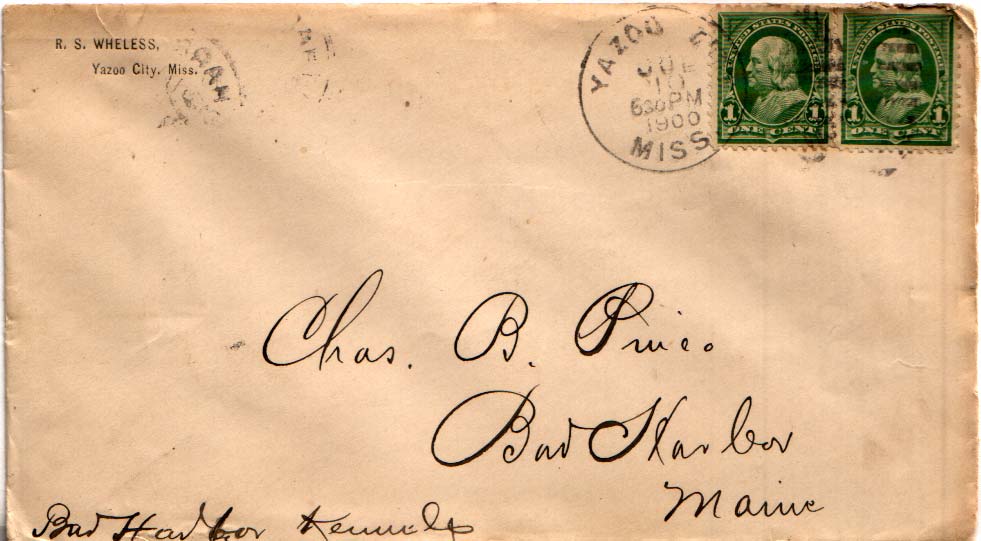 R. S. WHELESS,
Yazoo City, Miss.
YAZOO
JUL
10
630PM
1900
MISS
UNITED STATES POSTAGE
1 ONE CENT 1
UNITED STATES POSTAGE
1 ONE CENT 1
Chas. B. Pineo
Bar Harbor
Maine
Bar Harbor Kennels